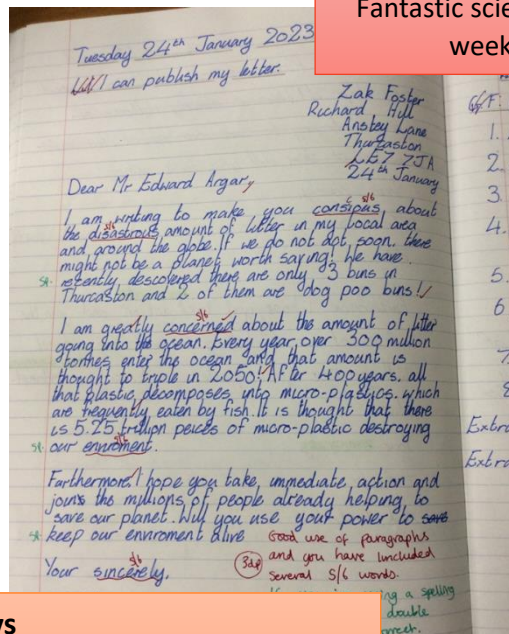 Fantastic scie
week
Tuesday 24th January 2023
LW/I can publish my letter.
Zak Foster
Richard Hill
Anstey Lane
Thurcaston
LE7 7JA
24th January
Dear Mr Edward Argar,
S/6
I am writing to make you consipus about
S/6
the disastrous amount of litter in my local area
and around the globe. If we do not act, soon, there
might not be a planet worth saving! We have
sp. recently descovered there are only 3 bins in
Thurcaston and 2 of them are dog poo bins!
S/6
I am greatly concerned about the amount of litter
going into the ocean. Every year, over 300 million
tonnes enter the ocean and that amount is
thought to triple in 2050! After 400 years, all
that plastic decomposes into micro-plastics, which
are frequently eaten by fish. It is thought that there
is 5.25 trillion peices of micro-plastic destroying
sp. our enviroment.
Farthermore, I hope you take, immediate, action and
joins the millions of people already helping to
save our planet. Will you use your power to save
sp. keep our enviroment alive
Good use of paragraphs
3dp and you have included
several S/6 words.
S/6
Your sincerely,
ing a spelling
double
correct.
G/F:
1.
2.
3.
4.
5.
6
7
8
Extra
Extra
ys